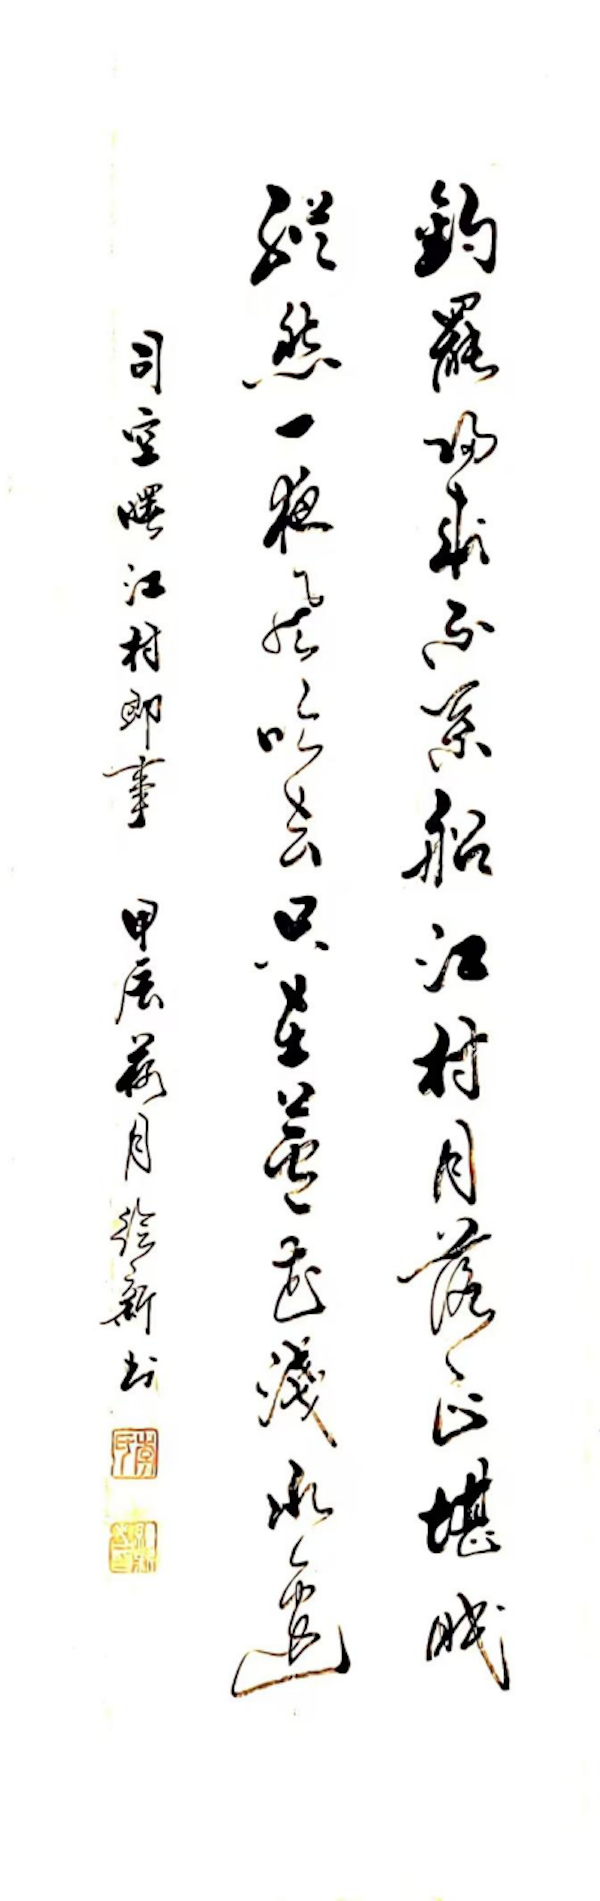 釣罷歸來不系船江村月落正堪眠
縱然一夜風吹去只在蘆花淺水邊
司空曙江村即事 甲辰荷月繪新书